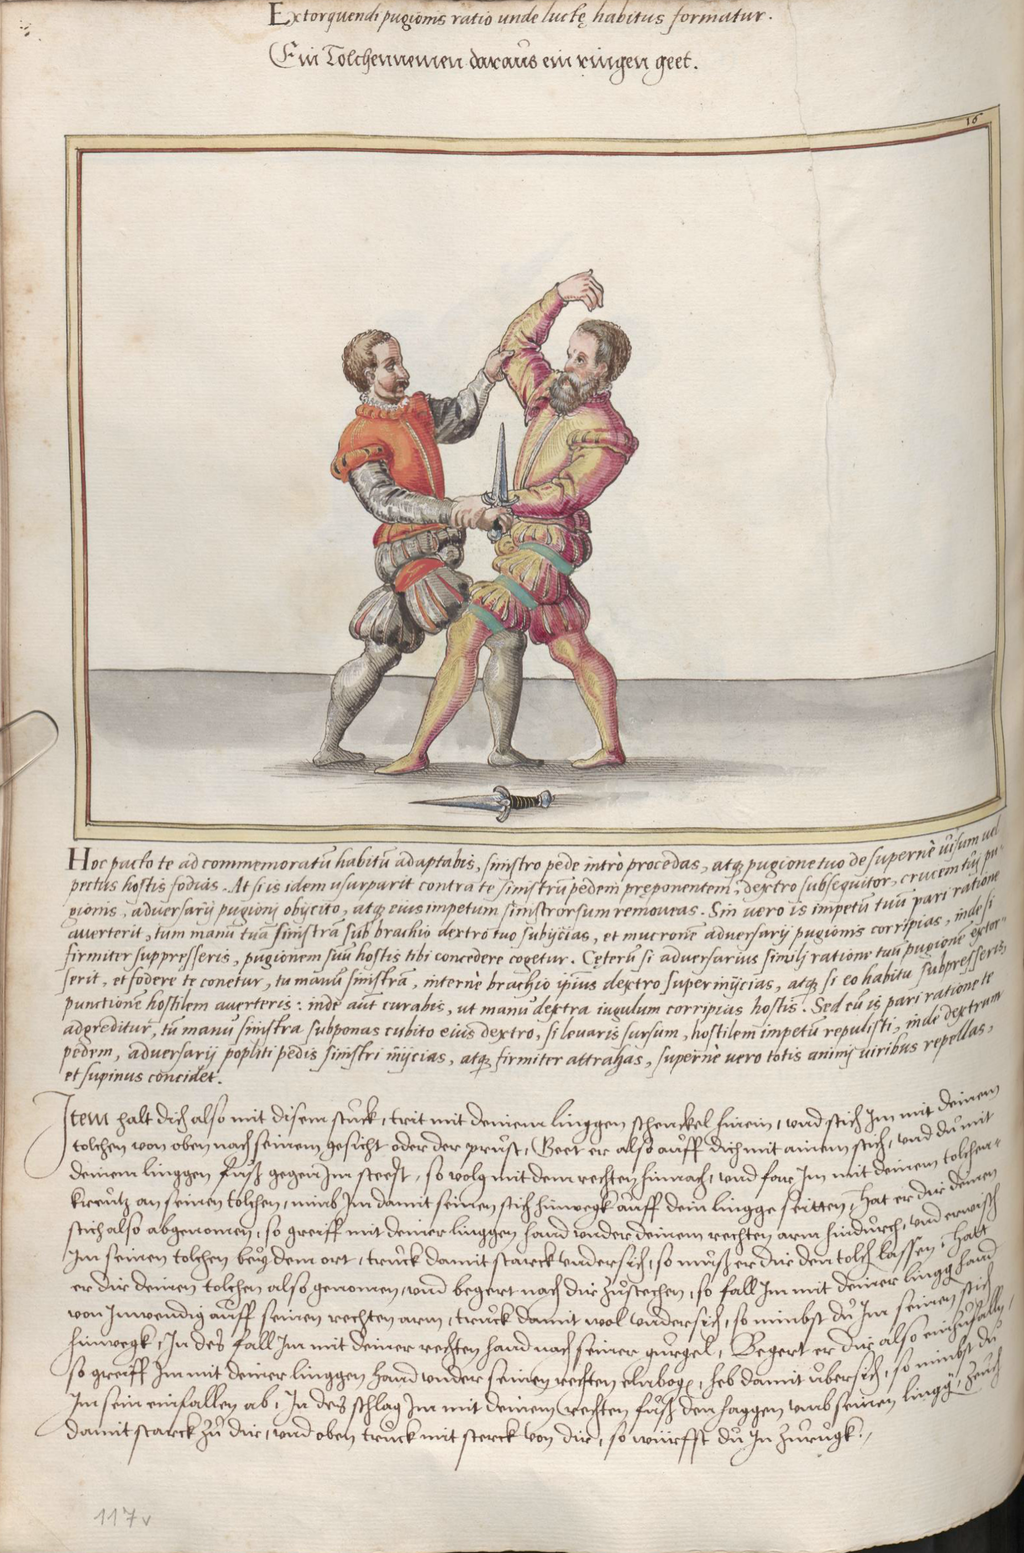 Extorquendi pugionis ratio unde luctę habitus formatur.
Ein Tolchennemen daraus ein ringen geet.
16
Hoc pacto te ad commemoratũ habitũ adaptabis, sinistro pede intrò procedas, atq; pugione tuo de supernè uisum uel
pectus hostis fodias. At si is idem usurparit contra te sinistrũ pedem preponentem, dextro subsequitor, crucem tuj pu-
gionis, adversarij pugionj obijcito, atq; eius impetum sinistrorsum remoueas. Sin uero is impetũ tuũ pari ratione
auerterit, tum manũ tuã sinistrã sub brachio dextro tuo subijcias, et mucronẽ aduersarij pugionis corripias, inde si
firmiter suppresseris, pugionem suũ hostis tibi concedere cogetur. Cęterũ si aduersarius similj ratione tuũ pugionẽ extor-
serit, et fodere te conetur, tu manũ sinistrã, internè brachio ipsius dextro superinijcias, atq; si eo habitu subpresseris,
punctionẽ hostilem auerteris: inde aut curabis, ut manu dextra iugulum corripias hostis. Sed cũ is pari ratione te
adgreditur, tu manũ sinistra subponas cubito eius dextro, si leuaris sursum, hostilem impetũ repulisti, inde dextrum
pedem, adversarij popliti pedis sinistri inijcias, atq; firmiter attrahas, supernè uero totis animj uiribus repellas,
et supinus concidet.
Item halt dich also mit disem stuck, trit mit deinem linggen schenckel hinein, und stich Im mit deinem
tolchen von oben nach seinem gesicht oder der prust, Geet er also auff dich mit ainem stich, und du mit
deinem linggen fuß gegen Im steest, so volg mit dem rechten hinnach, und far Im mit deinem tolchen
kreutz an seinen tolchen, nimb Im damit seinen stich hinwegk auff dein lingge seitten, Hat er dir deinen
stich also abgenomen, so greiff mit deiner linggen hand under deinem rechten arm hindurch, und erwisch
Im seinen tolchen bey dem ort, truck damit starck undersich, so muß er dir den tolch lassen, Hatt
er dir deinen tolchen also genomen, und begert nach dir zustechen, so fall Im mit deiner lingg hand
von Inwendig auff seinen rechten arm, truck damit wol undersich, so nimbst du Im seinen stich
hinwegk, In des fall Im mit deiner rechten hand nach seiner gurgel, Begert er dir also einzufallen,
so greiff Im mit deiner linggen hand under seinen rechten elnbogen, heb damit ubersich, so nimbst du
Im sein einfallen ab, In des schlag Im mit deinem rechten fuß den haggen umb seinen lingg, zeuch
damit starck zu dir, und oben truck mit sterck von dir, so würfft du In zurugk.
117v